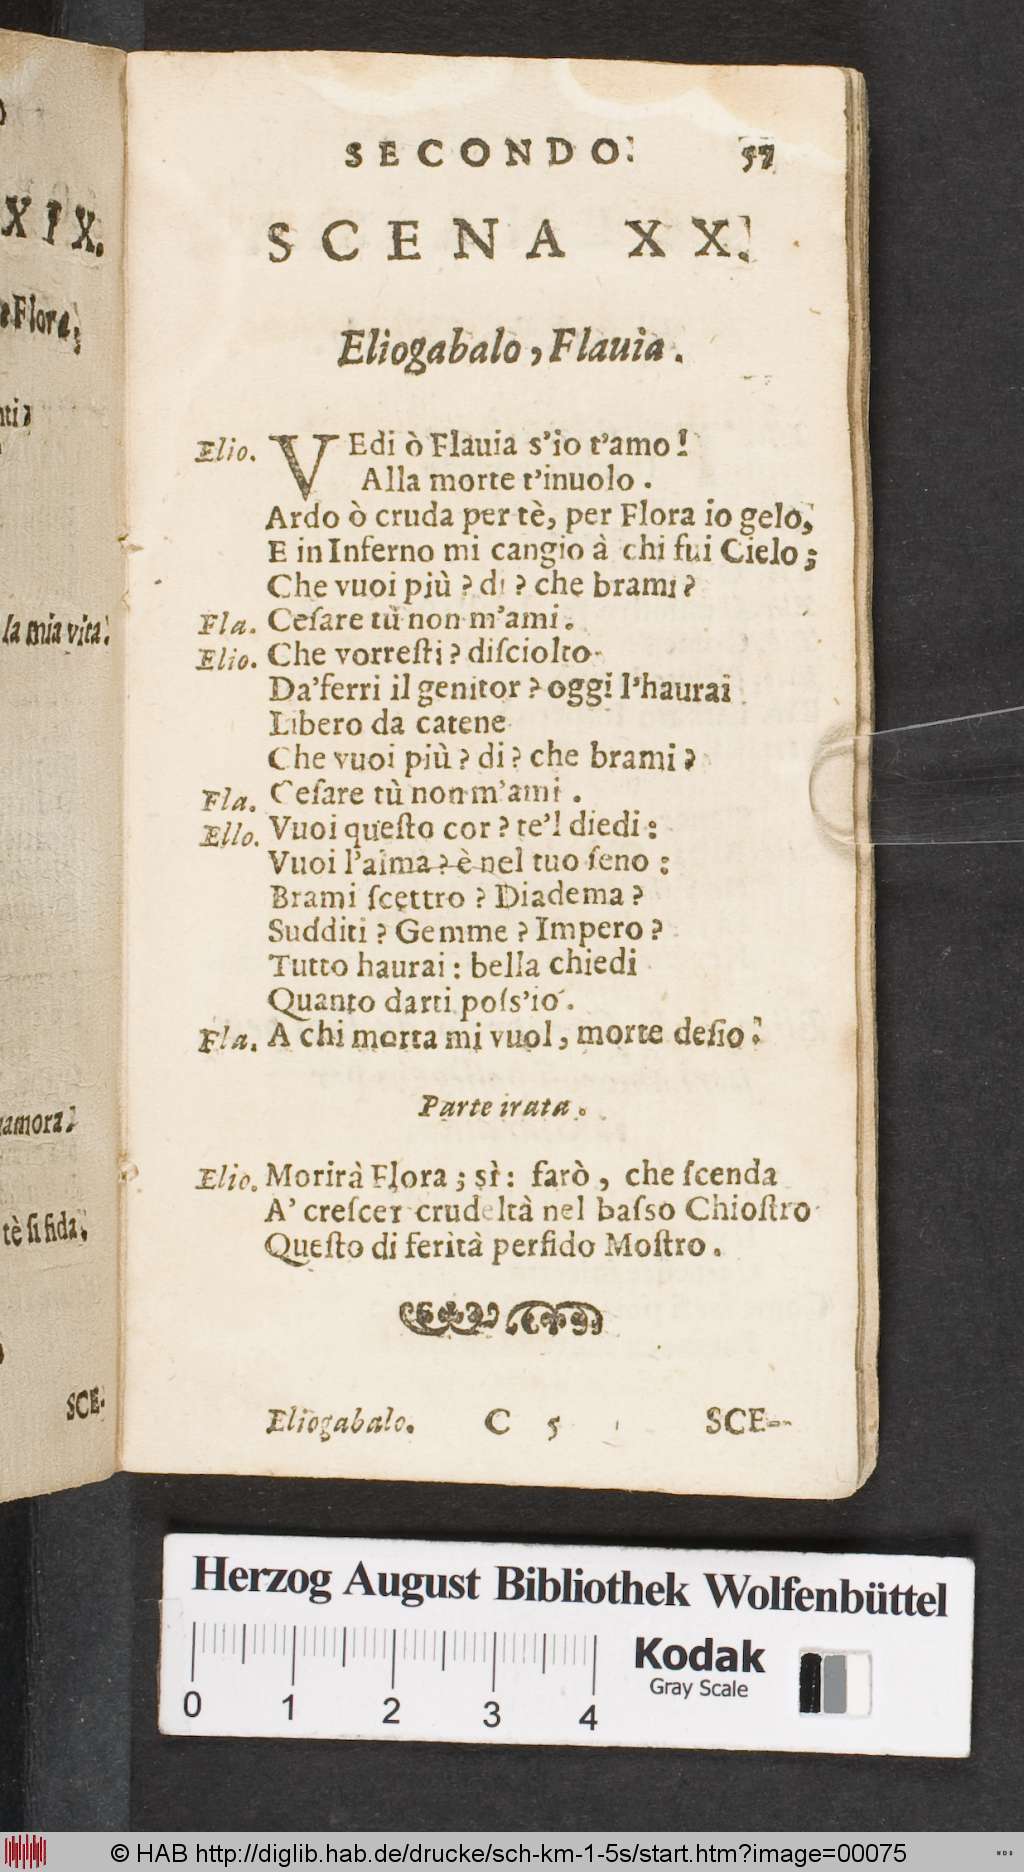 XIX.
Flora,
la mia vita.
tè ſi fida.
SCE-
SECONDO. 57
SCENA XX.
Eliogabalo, Flauia.
Elio. VEdi ò Flauia s'io t'amo!
Alla morte t'inuolo.
Ardo ò cruda per tè, per Flora io gelo,
E in Inferno mi cangio à chi fui Cielo;
Che vuoi più? di? che brami?
Fla. Ceſare tù non m'ami.
Elio. Che vorreſti? diſciolto
Da'ferri il genitor? oggi l'haurai
Libero da catene
Che vuoi più? di? che brami?
Fla. Ceſare tù non m'ami.
Ello. Vuoi queſto cor? te'l diedi:
Vuoi l'alma? è nel tuo ſeno:
Brami ſcettro? Diadema?
Sudditi? Gemme? Impero?
Tutto haurai: bella chiedi
Quanto darti poſs'io.
Fla. A chi morta mi vuol, morte deſio.
Parte irata.
Elio. Morirà Flora; sì: farò, che ſcenda
A' creſcer crudeltà nel baſſo Chioſtro
Queſto di ferità perfido Moſtro.
Eliogabalo. C 5 SCE-
Herzog August Bibliothek Wolfenbüttel
Kodak
Gray Scale
0 1 2 3 4
© HAB http://diglib.hab.de/drucke/sch-km-1-5s/start.htm?image=00075